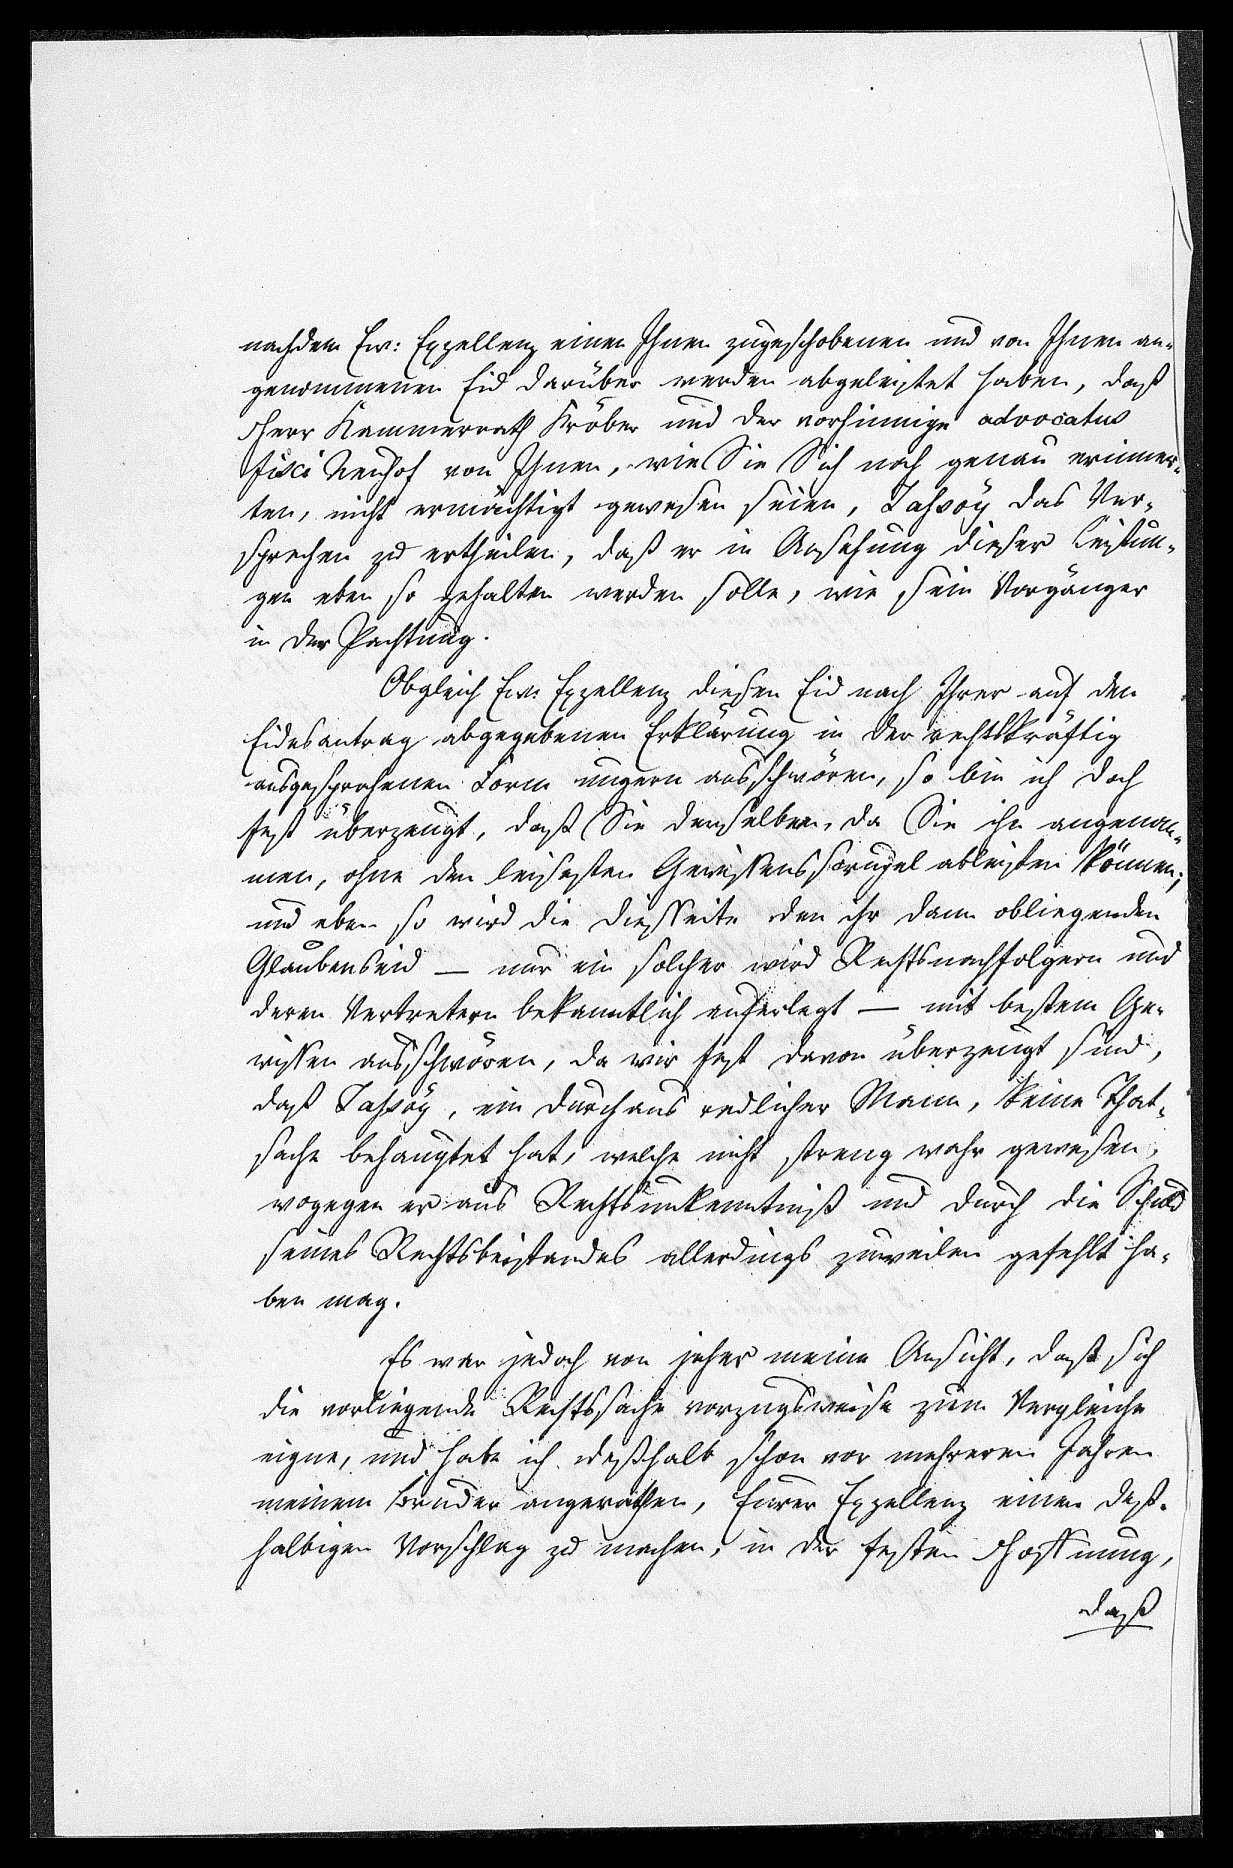 nachdem Ew: Exzellenz einen Ihnen zugeschobenen und von Ihnen an-
genommenen Eid darüber werden abgeleistet haben, daß
Herr Kammerrath Kröber und der vorhinnige advocatus
fisci Neuhof von Ihnen, wie Sie Sich noch genau erinner-
ten, nicht ermächtigt gewesen seien, das Ver-
sprechen zu ertheilen, daß er in Ansehung dieser Leistun-
gen eben so gehalten werden solle, wie sein Vorgänger
in der Pachtung.
Obgleich Ew: Exzellenz diesen Eid nach Ihrer auf den
Eidesantrag abgegebenen Erklärung in der rechtskräftig
ausgesprochenen Form ungern ausschwören, so bin ich doch
fest überzeugt, daß Sie denselben, da Sie ihn angenom-
men, ohne den leisesten Gewissensscrupel ableisten können;
und eben so wird die Diesseite den ihr dann obliegenden
Glaubenseid — nur ein solcher wird Rechtsnachfolgern und
deren Vertretern bekanntlich auferlegt — mit bestem Ge-
wissen ausschwören, da wir fest davon überzeugt sind,
daß ein durchaus redlicher Mann, keine That-
sache behauptet hat, welche nicht streng wahr gewesen,
wogegen er aus Rechtsunkenntniß und durch die Schuld
seines Rechtsbeistandes allerdings zuweilen gefehlt ha-
ben mag.
Es war jedoch von jeher meine Ansicht, daß sich
die vorliegende Rechtssache vorzugsweise zum Vergleiche
eigne, und habe ich deßhalb schon vor mehreren Jahren
meinem Bruder angerathen, Eurer Exzellenz einen deß-
halbigen Vorschlag zu machen, in der festen Hoffnung,
daß